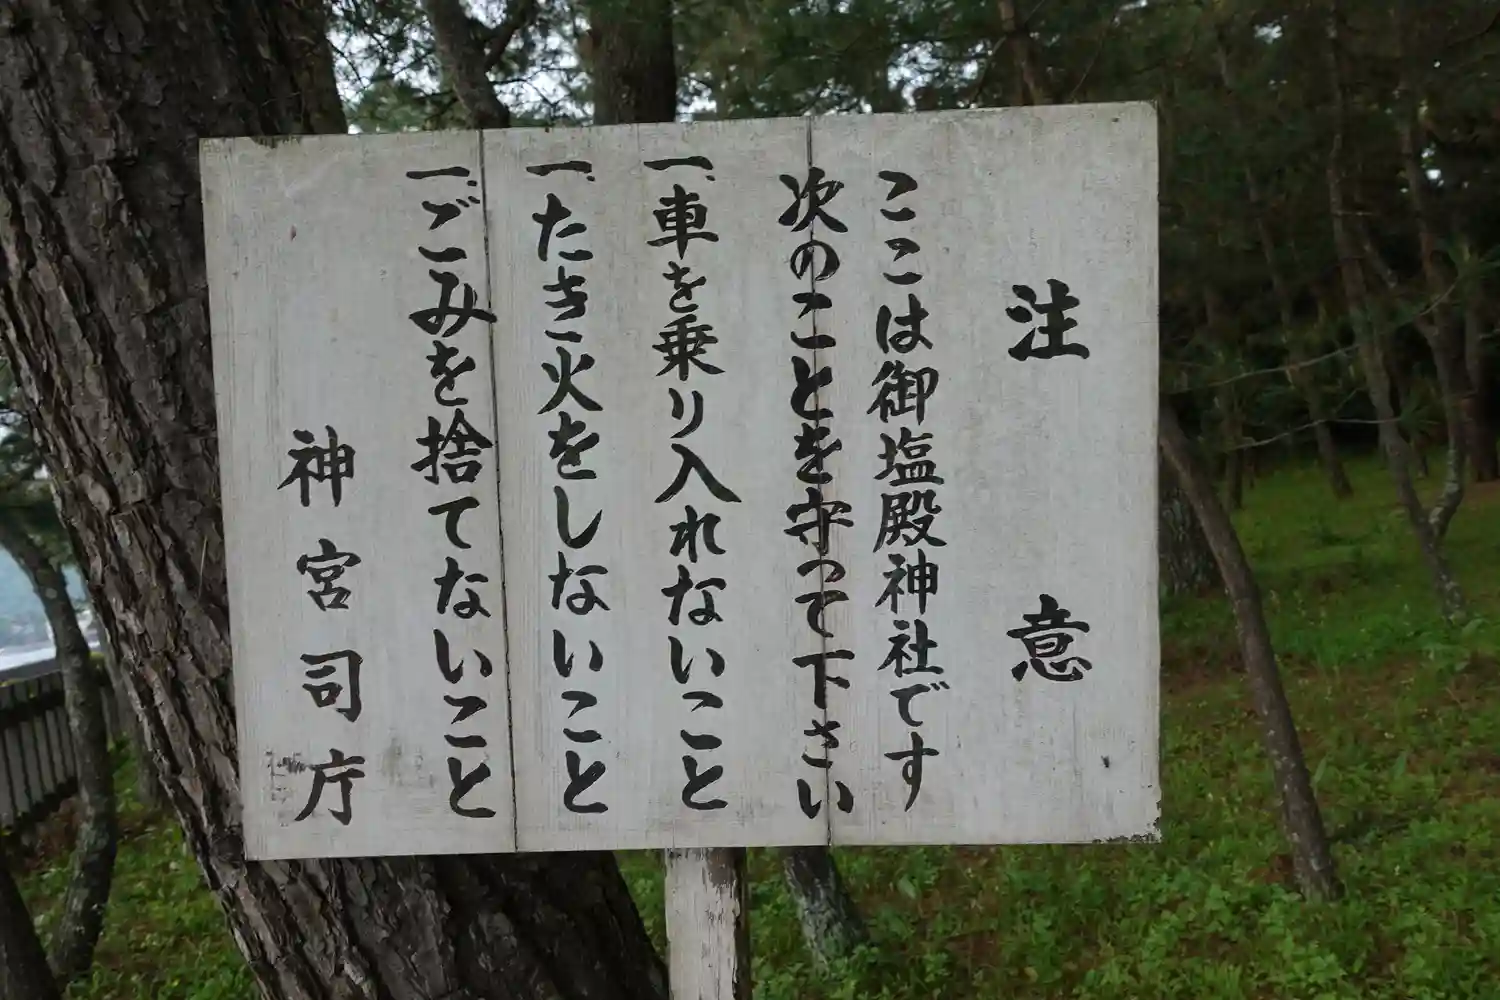 注意
ここは御塩殿神社です
次のことを守って下さい
一、車を乗り入れないこと
一、たき火をしないこと
一、ごみを捨てないこと
神宮司庁